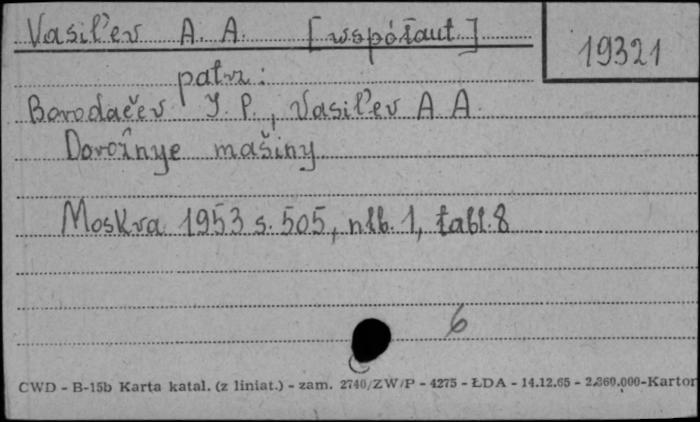 Vasil'ev A. A. [współaut.]
19321
patrz:
Borodačev I. P., Vasil'ev A A.
Dorožnye mašiny
Moskva 1953 s. 505, nlb. 1, tabl. 8
6
CWD - B-15b Karta katal. (z liniat.) - zam. 2740/ZW/P - 4275 - ŁDA - 14.12.65 - 2.360.000-Karton